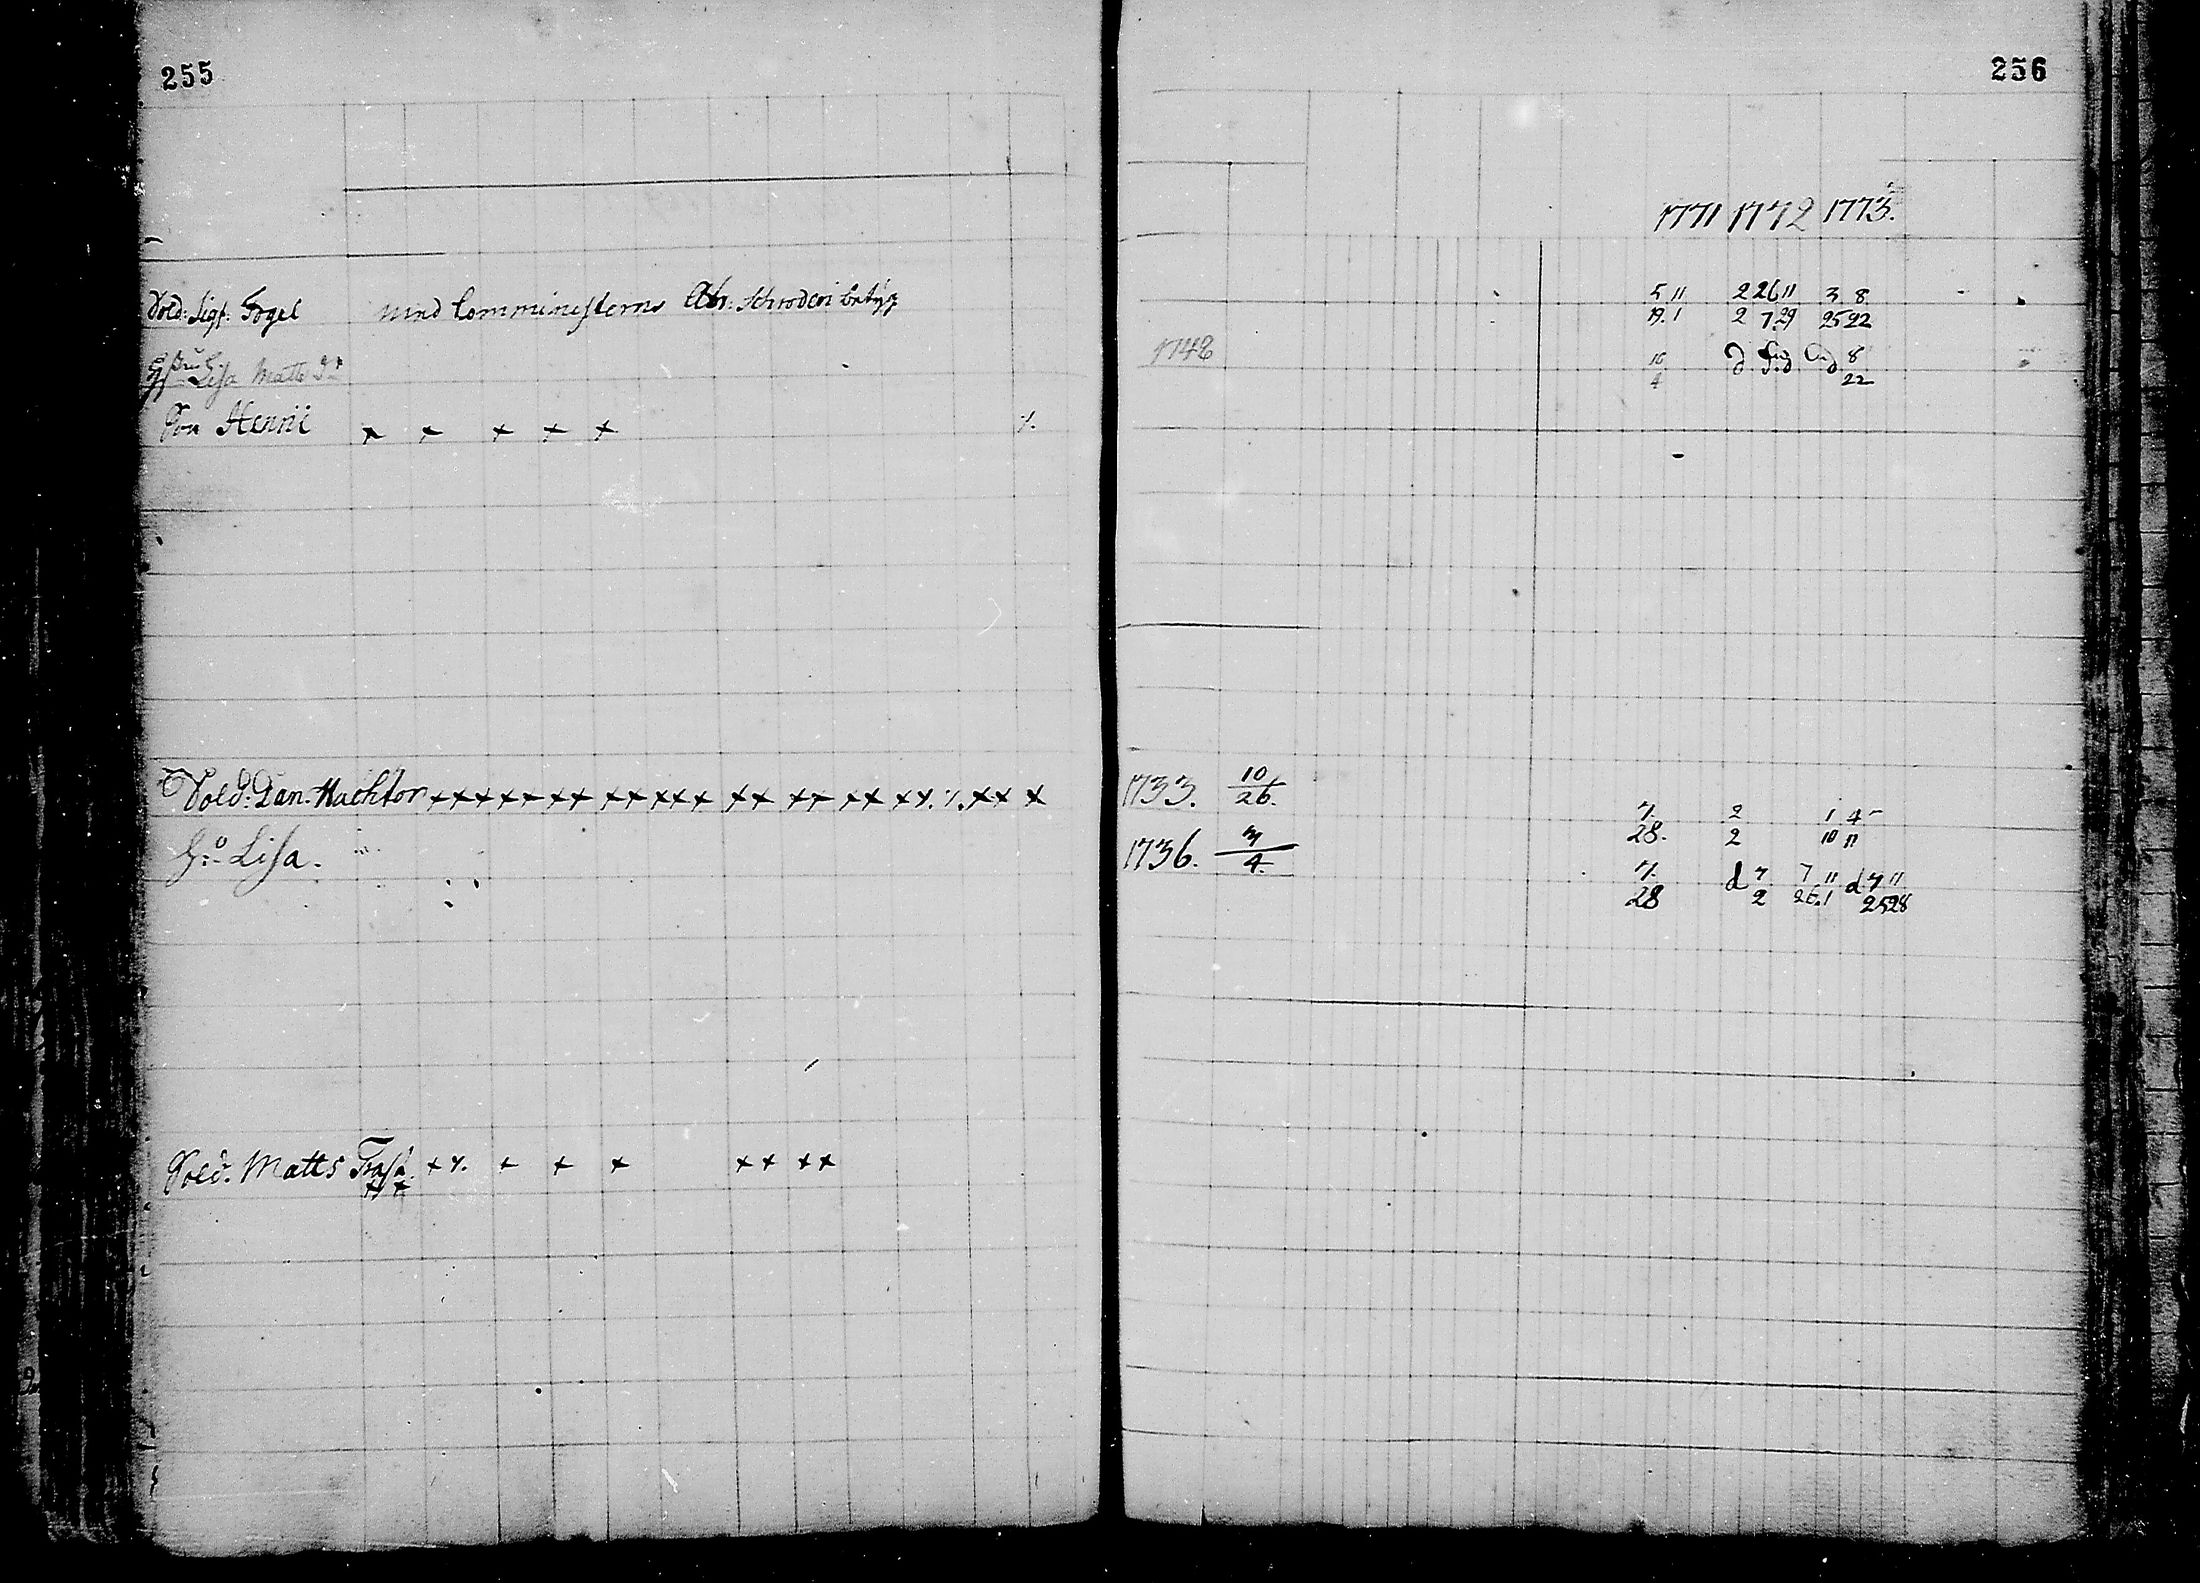 255
256
1771 1772 1773.
Sold: Sigf: Fogel med Comministerns Abr: Schroderi betyg
5 11 2 26 11 3 8
19. 1 2 7. 29 25 22
Lisa Matts dr 1748
10 8
4 22
Son Henric x x x x x
Sold: Dan. Wachtor x x x x x x x x x x x x x x x x x x x x x x x x 1733. 10/26.
7. 2 1 4
28. 2 10 11
H:o Lisa. 1736. 3/4.
7. d 7 7 11 d 7 11
28 2 26. 1 25 28
Sold. Matts Frasa x x. x x x x x x x
x x